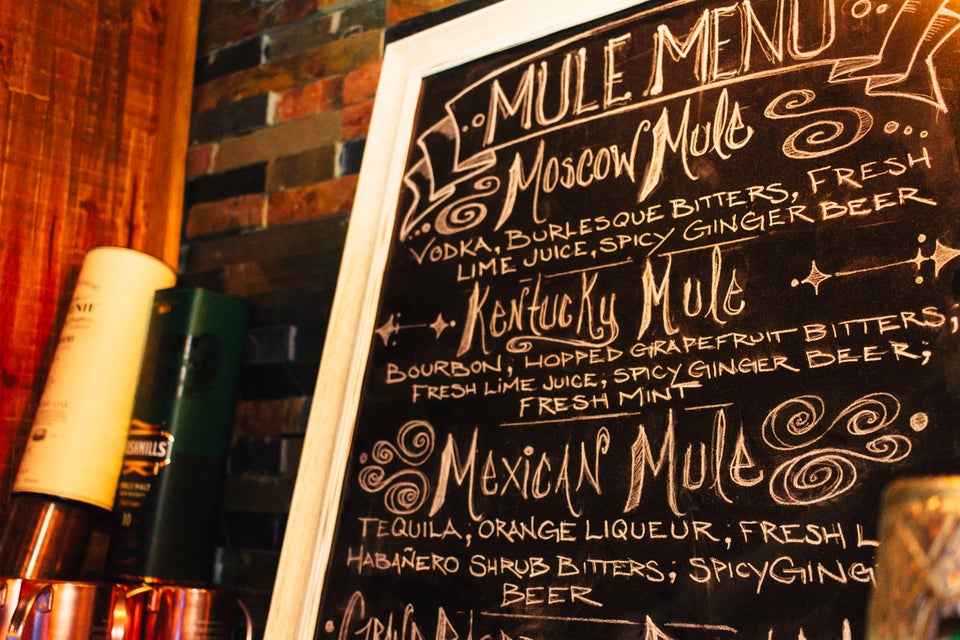 MULE MENU
MOSCOW MULE
VODKA, BURLESQUE BITTERS, FRESH
LIME JUICE, SPICY GINGER BEER
KENTUCKY MULE
BOURBON, HOPPED GRAPEFRUIT BITTERS,
FRESH LIME JUICE, SPICY GINGER BEER,
FRESH MINT
MEXICAN MULE
TEQUILA, ORANGE LIQUEUR, FRESH L
HABAÑERO SHRUB BITTERS, SPICY GING
BEER
SHMILLS
10